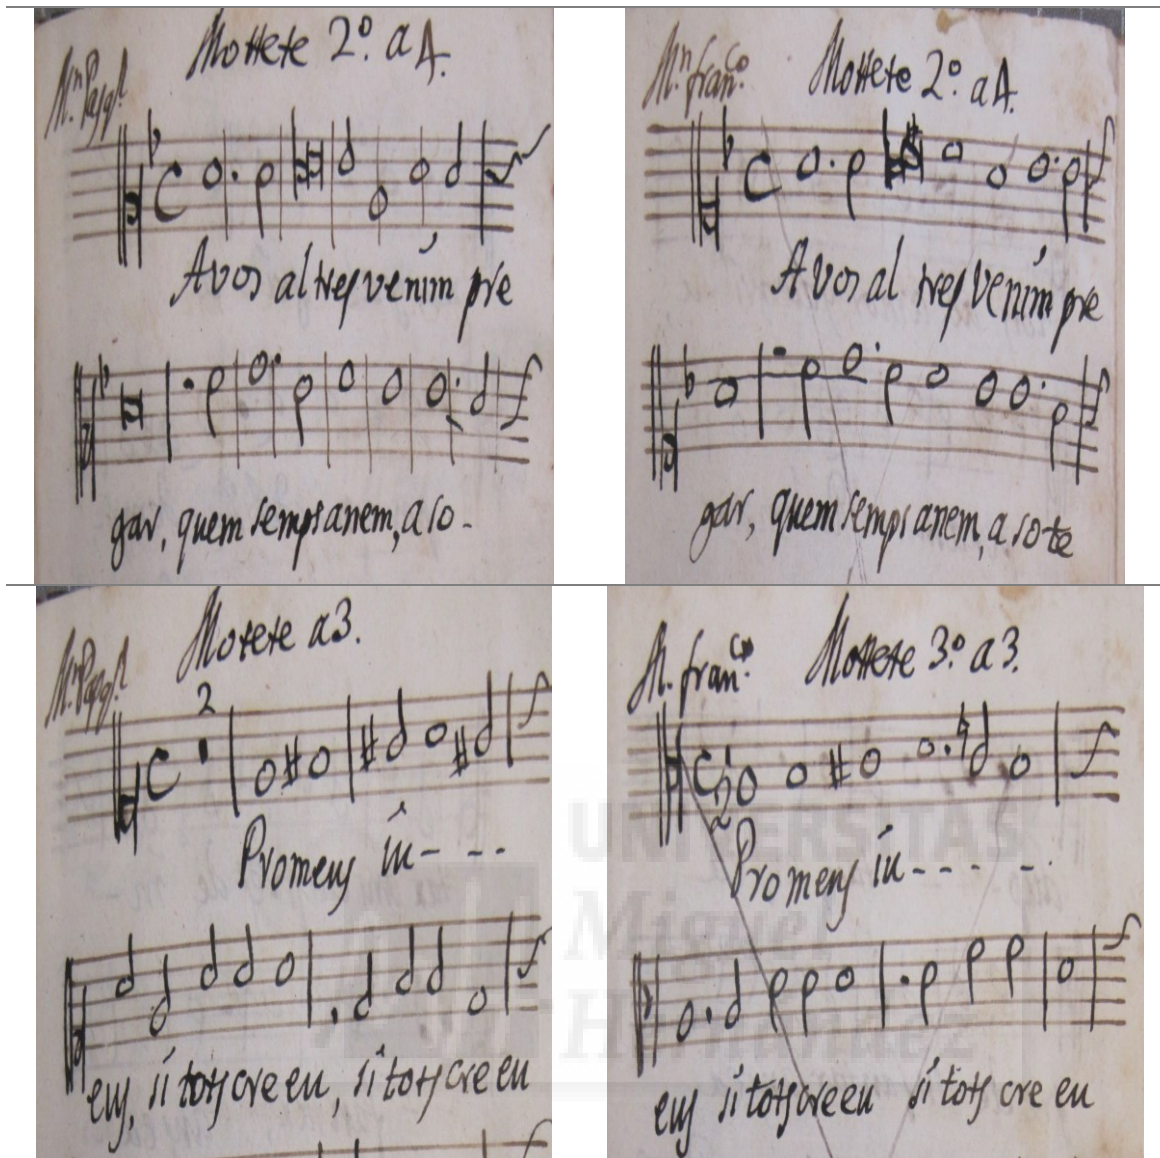 Mottete 2º. a 4.
Mn Pasql.
A vos altres venim pre
gar, quem semps anem, a so-
Mn franco.
Mottete 2º. a 4.
A vos al tres venim pre
gar, quem semps anem, a so te
Motete a 3.
Mn Pasql.
2
Promens in- - -
ens, si tots cre eu, si tots cre eu
M. franco.
Mottete 3º. a 3.
Promens in- - - -
ens si tots cre eu si tots cre eu
UNIVERSITAS
Miguel
Hernández